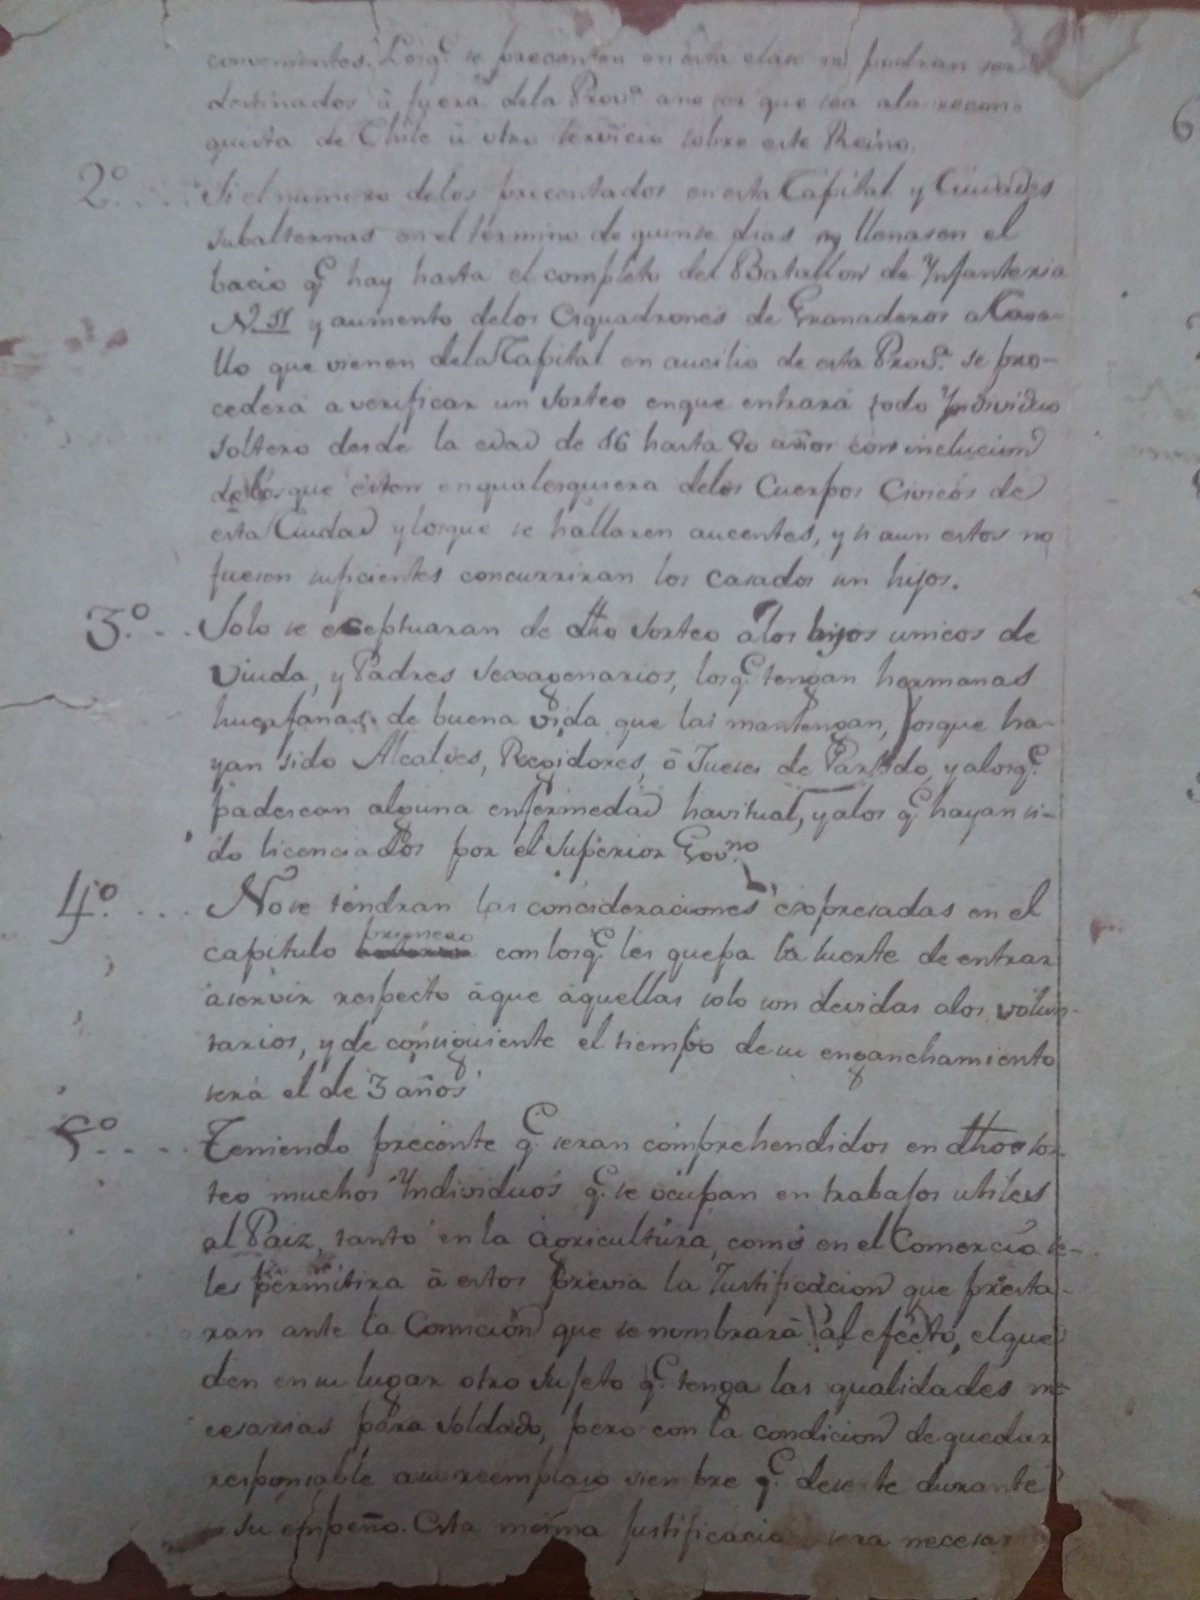 convenientes. Losq.e se precenten en esta clase no podran ser
destinados â fuera dela Prov.a ano ser que sea ala recon-
quista de Chile û otro servicio sobre este Reino.
2.º... Si el numero delos precentados en esta Capital y Ciudades
subalternas en el termino de quinse dias no llenasen el
bacio q.e hay hasta el completo del Batallon de Ynfanteria
N. 11 y aumento delos Esquadrones de Granaderos a Cava-
llo que vienen dela Capital en aucilio de esta Prov.a se pro-
cederá a verificar un Sorteo enque entrará todo Yndividuo
soltero desde la edad de 16 hasta 50 años con inclucion
delos que esten enqualesquiera delos Cuerpos Civicos de
esta Ciudad y losque se hallaren aucentes, y si aun estos no
fuesen suficientes concurriran los casados sin hijos.
3.º... Solo se eceptuaran de dho Sorteo alos hijos unicos de
Viuda, y Padres Sexagenarios, losq.e tengan hermanas
huerfanas de buena vida que las mantengan, losque ha-
yan sido Alcaldes, Regidores, ô Jueces de Partido, y alosq.e
padescan alguna enfermedad havitual, y alos q.e hayan si-
do licenciados por el Superior Gov.no
4.º... No se tendran las concideraciones expresadas en el
capitulo primero con losq.e les quepa la suerte de entrar
aservir respecto âque aquellas solo son devidas alos volun-
tarios, y de consiguiente el tiempo de su enganchamiento
será el de 3 años
5.º... Teniendo precente q.e seran comprehendidos en dho sor-
teo muchos Yndividuos q.e se ocupan en trabajos utiles
al Paiz, tanto en la Agricultura, como en el Comercio se
les permitira â estos previa la Justificacion que presta-
ran ante la Comicion que se nombrará al efecto, elque
den en su lugar otro Sujeto q.e tenga las qualidades ne-
cesarias para Soldado, pero con la condicion de quedar
responsable a su reemplaso siembre q.e deserte durante
su empeño. Esta misma Justificacion sera necesar